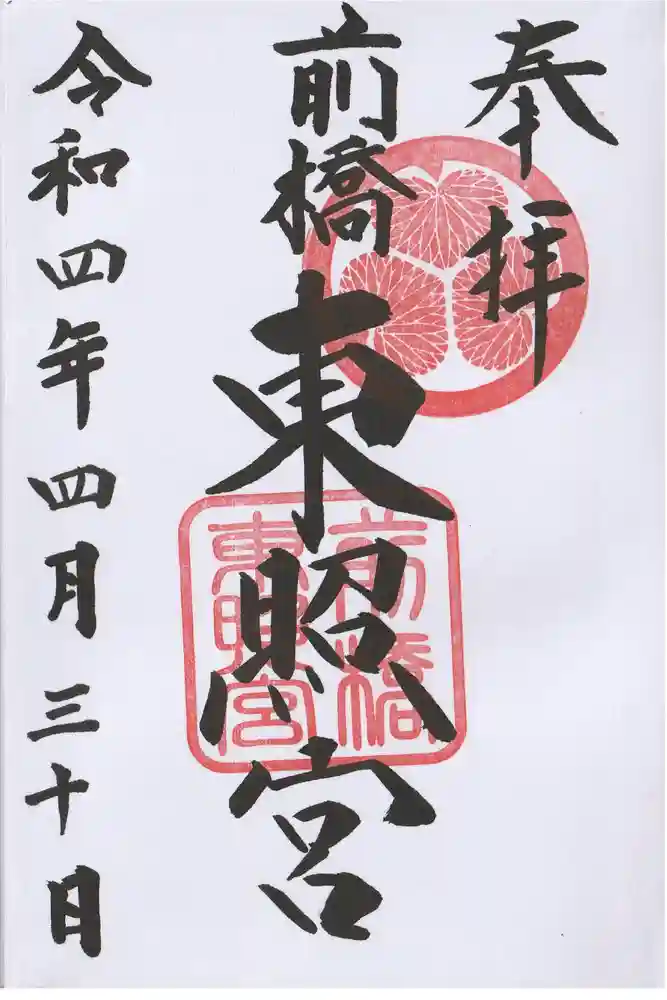 奉拝
前橋東照宮
前橋
東照宮
令和四年四月三十日